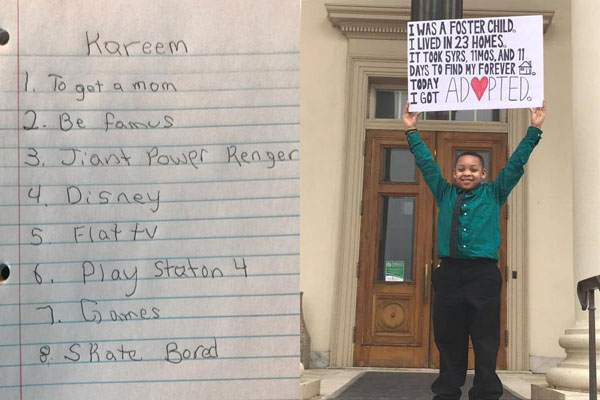 Kareem
1. To got a mom
2. Be famus
3. Jiant Power Renger
4. Disney
5. Flat tv
6. Play Staton 4
7. Games
8. SKate Bored
I WAS A FOSTER CHILD.
I LIVED IN 23 HOMES.
IT TOOK 5YRS, 11MOS, AND 11
DAYS TO FIND MY FOREVER 🏠.
TODAY
I GOT AD❤PTED.